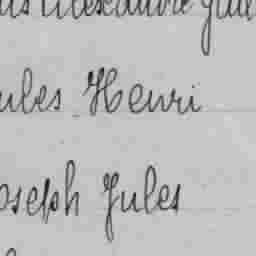 Alexandre Jule
ules Henri
oseph Jules